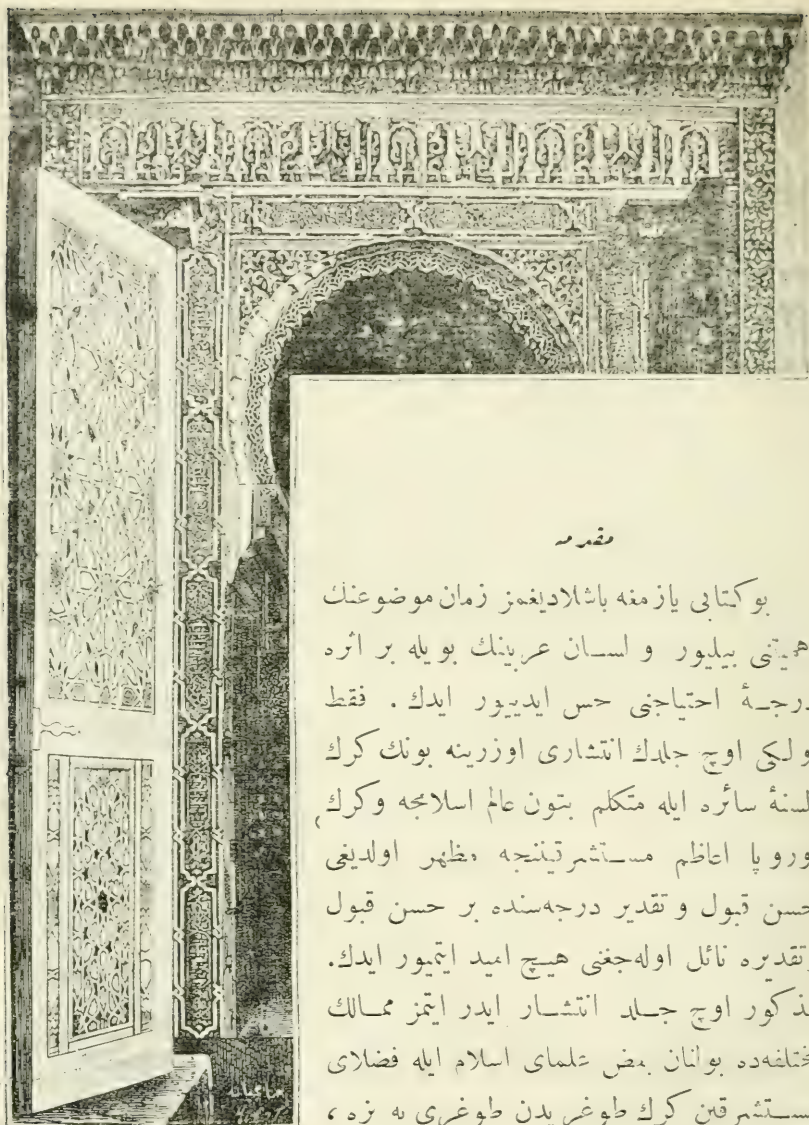 مقدمه
بو كتابی يازمغه باشلاديغمز زمان موضوعنك
هميتنی بيليور و لسان عربينك بويله بر اثره
درجۀ احتياجنی حس ايدييور ايدك . فقط
ولكی اوچ جلدك انتشاری اوزرينه بونك كرك
لسنۀ سائره ايله متكلم بتون عالم اسلامجه وكرك
وروپا اعاظم مستشرقيننجه مظهر اولديغی
حسن قبول و تقدير درجه‌سنده بر حسن قبول
تقديره نائل اوله‌جغنی هيچ اميد ايتميور ايدك.
ذكور اوچ جلد انتشار ايدر ايتمز ممالك
ختلفه‌ده بولنان بعض علمای اسلام ايله فضلای
ستشرقين كرك طوغريدن طوغری يه بزه ،